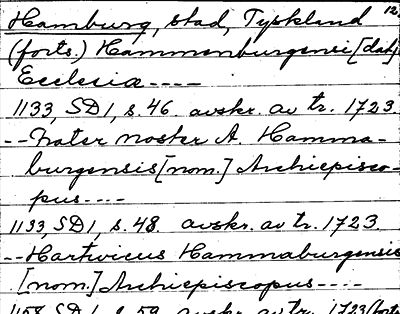 Hamburg, stad, Tyskland 12.
(forts.) Hammenburgensi [dat]
Ecclesiæ ----
1133, SD 1, s. 46. avskr. av tr. 1723.
-- Frater noster A. Hamma-
burgensis [nom.] Archiepisco-
pus ----
1133, SD 1, s. 48. avskr. av tr. 1723.
-- Hartvicus Hammaburgensis
[nom.] Archiepiscopus ----
1158 SD 1, s. 59. avskr. av tr. 1723 (forts